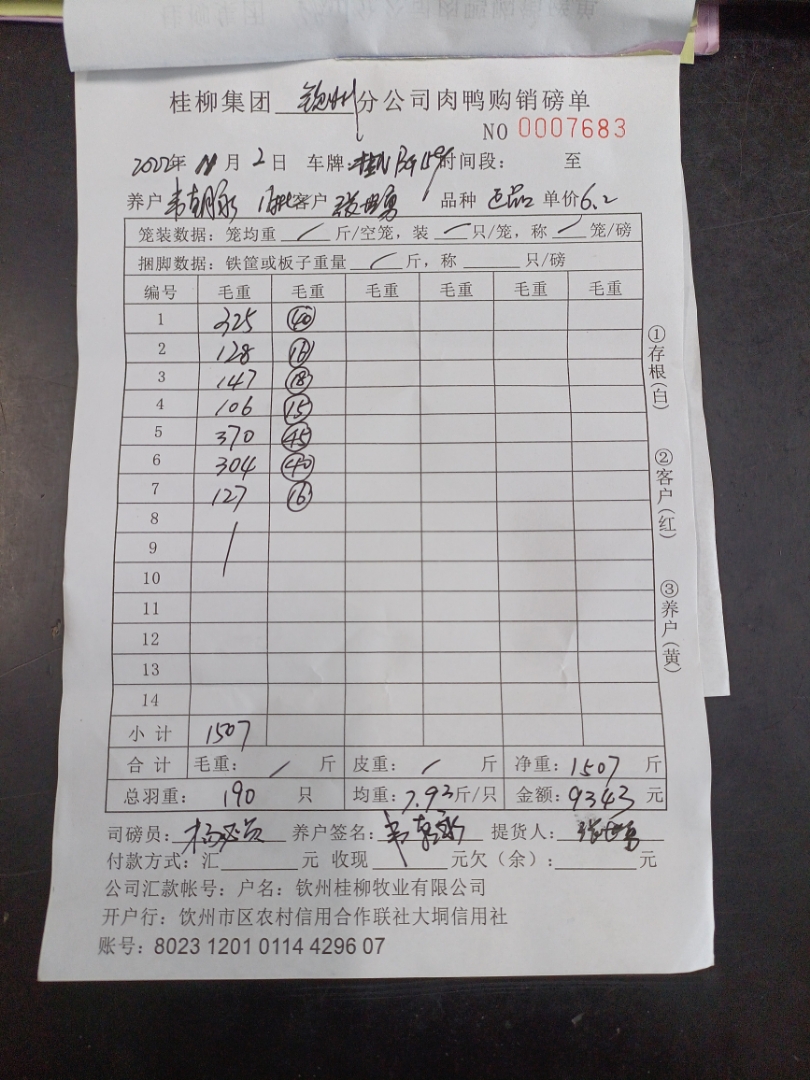 桂柳集团 钦州 分公司肉鸭购销磅单
NO 0007683
2022年 11月 2日 车牌: 时间段: 至
养户 韦朝永 客户 张世勇 品种 正品 单价6.2
笼装数据：笼均重 / 斤/空笼，装 / 只/笼，称 / 笼/磅
捆脚数据：铁筐或板子重量 / 斤，称 只/磅
编号 毛重 毛重 毛重 毛重 毛重 毛重
1 325 40
2 128 16
3 147 18
4 106 15
5 370 45
6 304 40
7 127 16
8
9
10
11
12
13
14
小计 1507
合计 毛重: / 斤 皮重: / 斤 净重: 1507 斤
总羽重: 190 只 均重: 7.93斤/只 金额: 9343 元
司磅员: 养户签名: 韦朝永 提货人: 张世勇
付款方式: 汇 元 收现 元欠（余）: 元
公司汇款帐号: 户名: 钦州桂柳牧业有限公司
开户行: 钦州市区农村信用合作联社大垌信用社
账号: 8023 1201 0114 4296 07
①存根(白)
②客户(红)
③养户(黄)